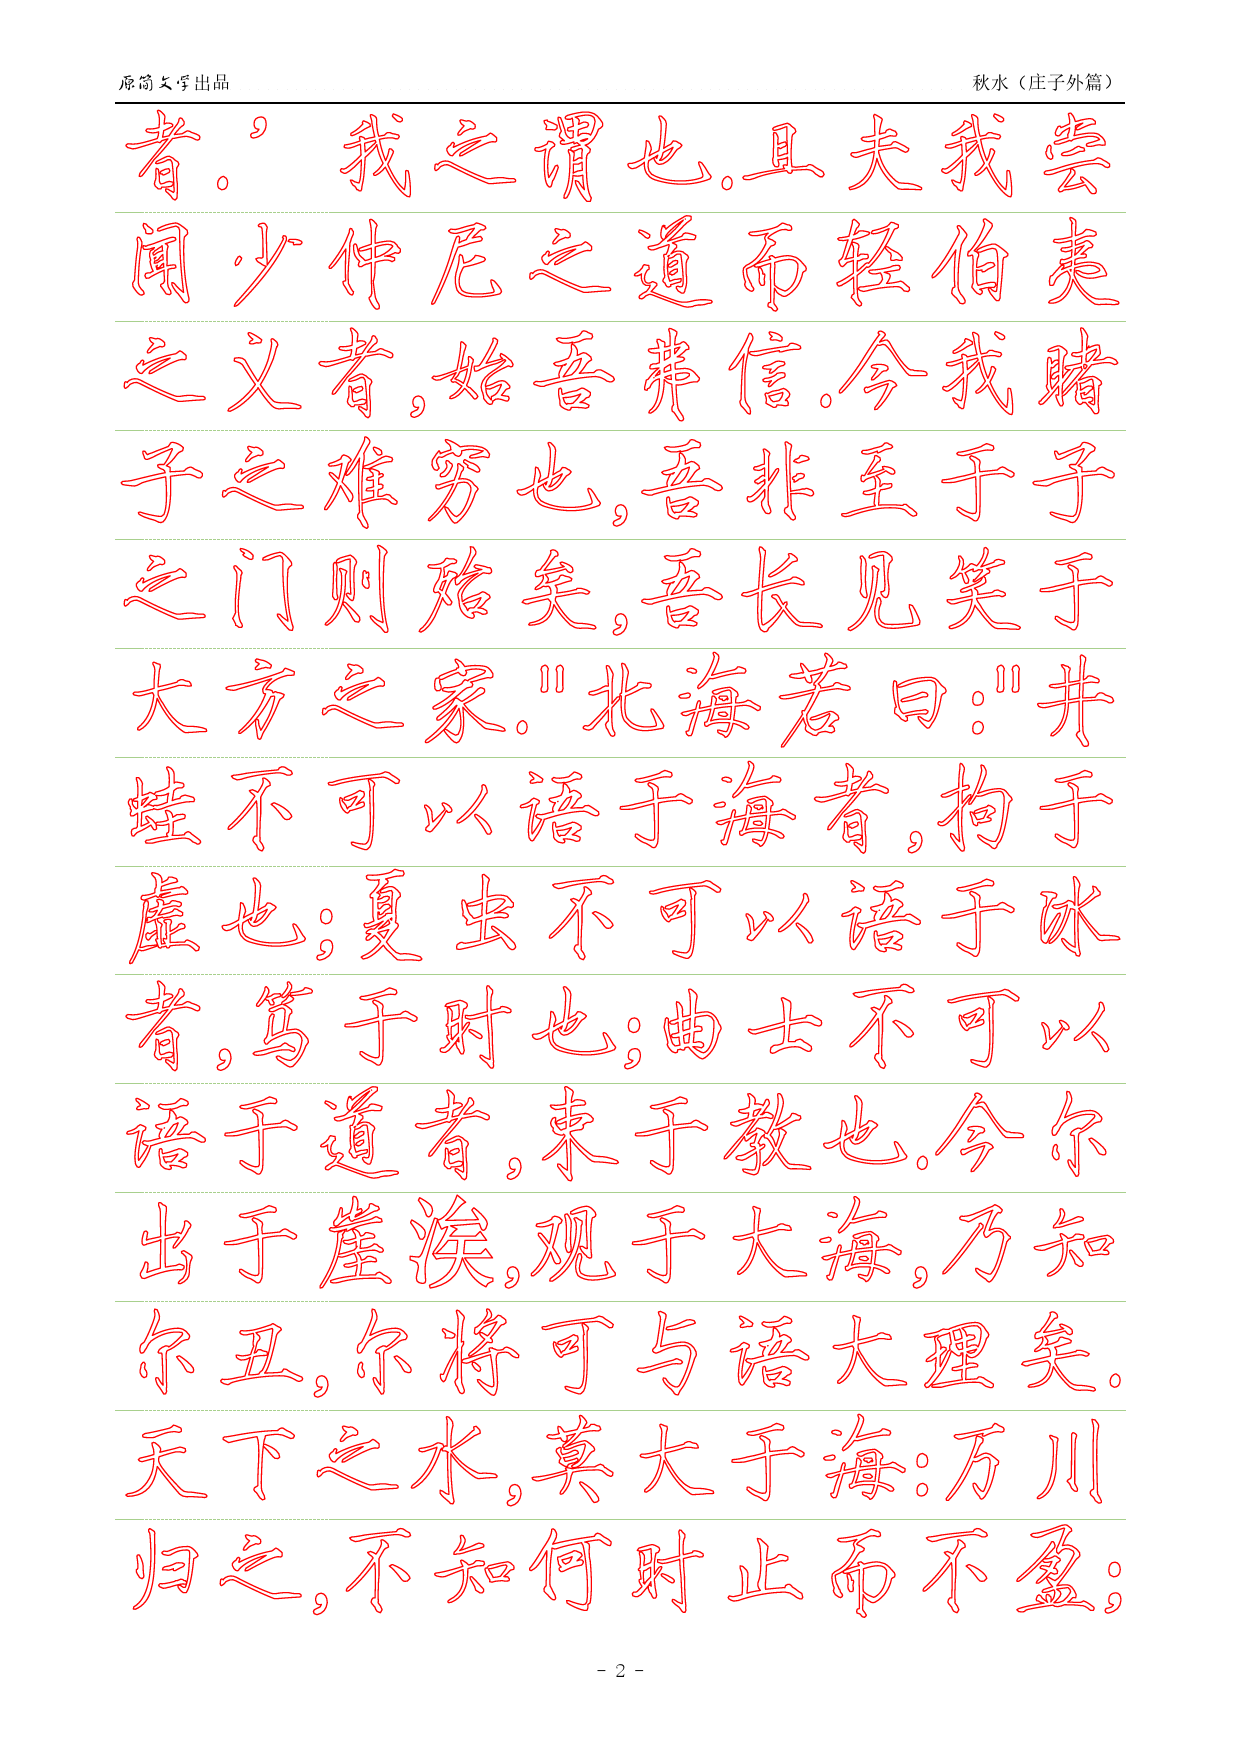 原简文学出品 秋水（庄子外篇）
者.’ 我之谓也.且夫我尝
闻少仲尼之道而轻伯夷
之义者,始吾弗信.今我睹
子之难穷也,吾非至于子
之门则殆矣,吾长见笑于
大方之家."北海若曰:"井
蛙不可以语于海者,拘于
虚也;夏虫不可以语于冰
者,笃于时也;曲士不可以
语于道者,束于教也.今尔
出于崖涘,观于大海,乃知
尔丑,尔将可与语大理矣.
天下之水,莫大于海:万川
归之,不知何时止而不盈;
- 2 -